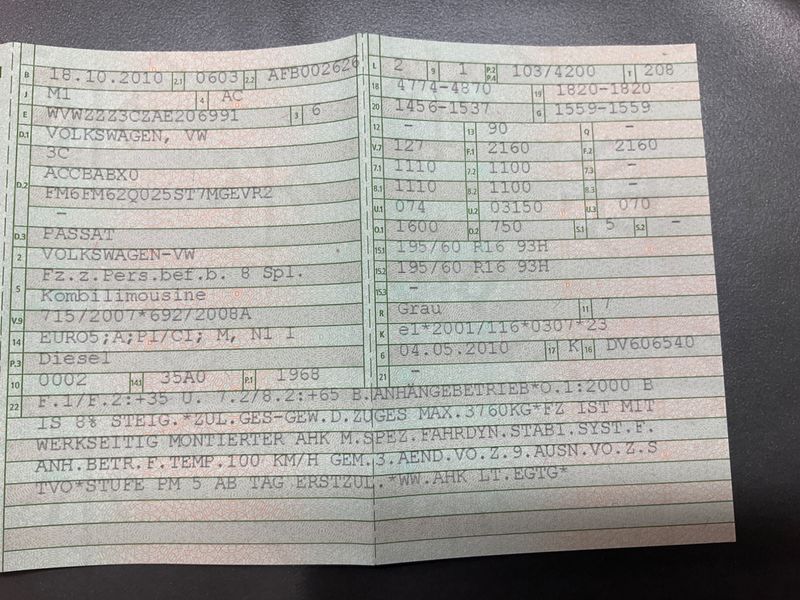 B 18.10.2010 2.1 0603 2.2 AFB002626
J M1 4 AC
E WVWZZZ3CZAE206991 3 6
D.1 VOLKSWAGEN, VW
3C
D.2 ACCBABX0
FM6FM62Q025ST7MGEVR2
-
D.3 PASSAT
2 VOLKSWAGEN-VW
5 Fz.z.Pers.bef.b. 8 Spl.
Kombilimousine
V.9 715/2007*692/2008A
14 EURO5;A;PI/CI; M, N1 I
P.3 Diesel
10 0002 14.1 35A0 P.1 1968
L 2 9 1 P.2 P.4 103/4200 T 208
18 4774-4870 19 1820-1820
20 1456-1537 G 1559-1559
12 - 13 90 Q -
V.7 127 F.1 2160 F.2 2160
7.1 1110 7.2 1100 7.3 -
8.1 1110 8.2 1100 8.3 -
U.1 074 U.2 03150 U.3 070
O.1 1600 O.2 750 S.1 5 S.2 -
15.1 195/60 R16 93H
15.2 195/60 R16 93H
15.3 -
R Grau 11 7
K e1*2001/116*0307*23
6 04.05.2010 17 K 16 DV606540
21 -
22 F.1/F.2:+35 U. 7.2/8.2:+65 B.ANHÄNGEBETRIEB*O.1:2000 B
IS 8% STEIG.*ZUL.GES-GEW.D.ZUGES MAX.3760KG*FZ IST MIT
WERKSEITIG MONTIERTER AHK M.SPEZ.FAHRDYN.STABI.SYST.F.
ANH.BETR.F.TEMP.100 KM/H GEM.3.AEND.VO.Z.9.AUSN.VO.Z.S
TVO*STUFE PM 5 AB TAG ERSTZUL.*WW.AHK LT.EGTG*